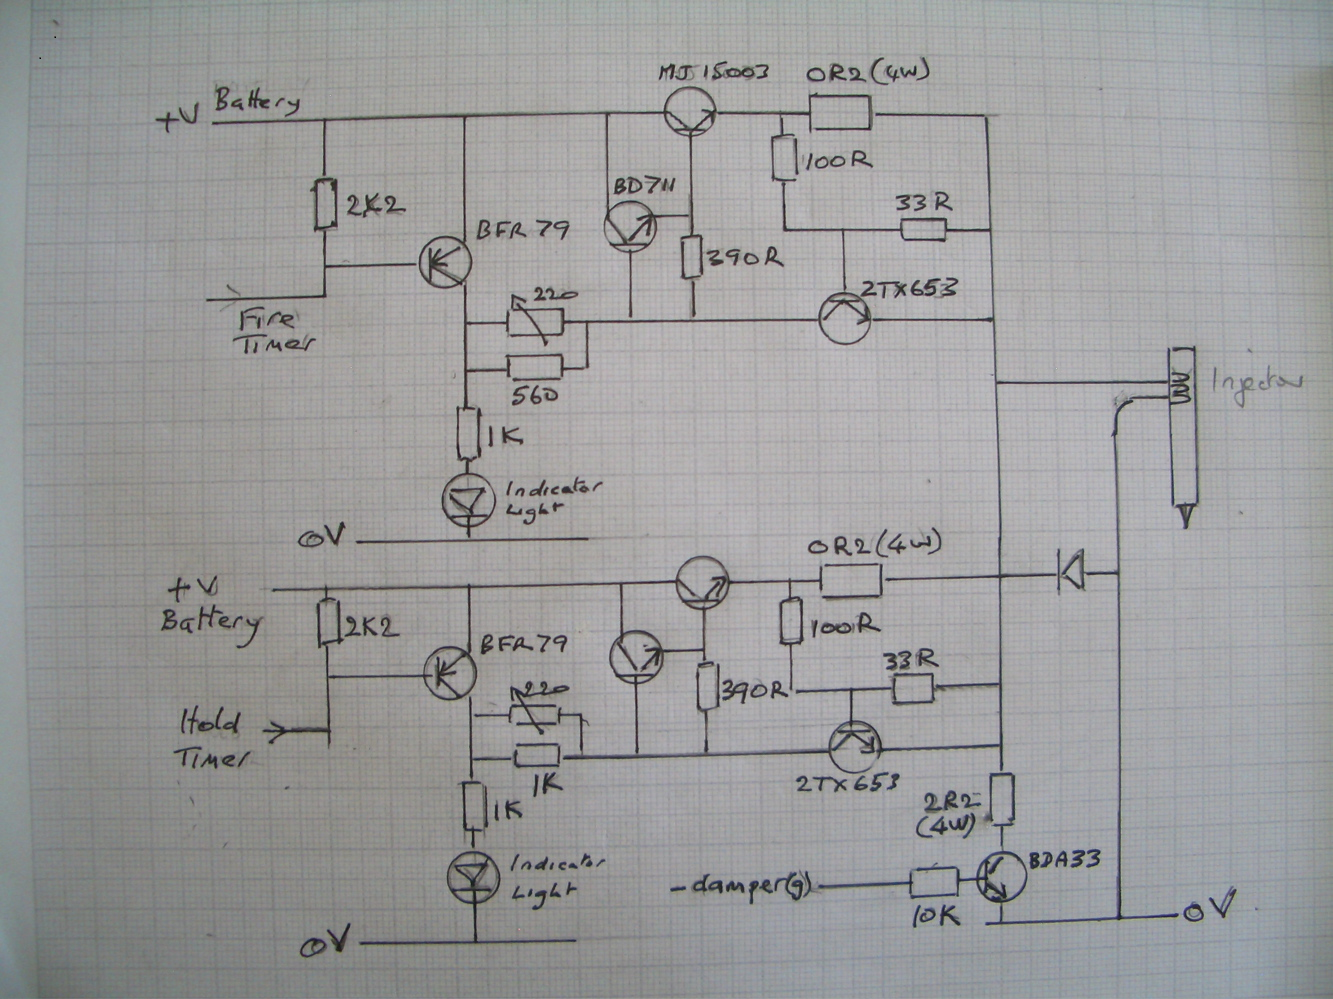 MJ15003
0R2 (4W)
+V Battery
100R
BD711
2K2
33R
BFR79
390R
2TX653
220
Fire
Timer
Injector
560
1K
Indicator
Light
0V
0R2 (4W)
+V
Battery
2K2
100R
BFR79
33R
220
390R
Hold
Timer
1K
2TX653
1K
2R2
(4W)
Indicator
Light
BDA33
-damper(g)
10K
0V
0V